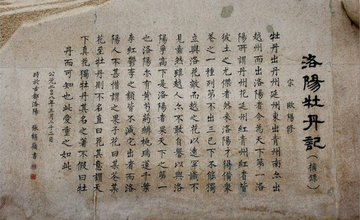 洛陽牡丹記（摘錄）
宋 歐陽修
牡丹出丹州延州東出青州南亦出
越州而出洛陽者今為天下第一洛
陽所謂丹州花延州紅青州紅者皆
彼土之尤傑者然來洛陽才得備眾
花之一種列第不出三已下不能獨
立與洛花敵而越之花以遠罕識不
見齒然雖越人亦不敢自譽以與洛
陽爭高下是洛陽者果天下之第一
也洛陽亦有黃芍藥緋桃瑞蓮千葉
李紅鬱李之類皆不減它出者而洛
陽人不甚惜謂之果子花曰某花某
花至牡丹則不名直曰花其意謂天
下真花獨牡丹其名之著不假曰牡
丹而可知也其愛重之如此
公元二〇〇八年三月二十二日
時於古都洛陽 書